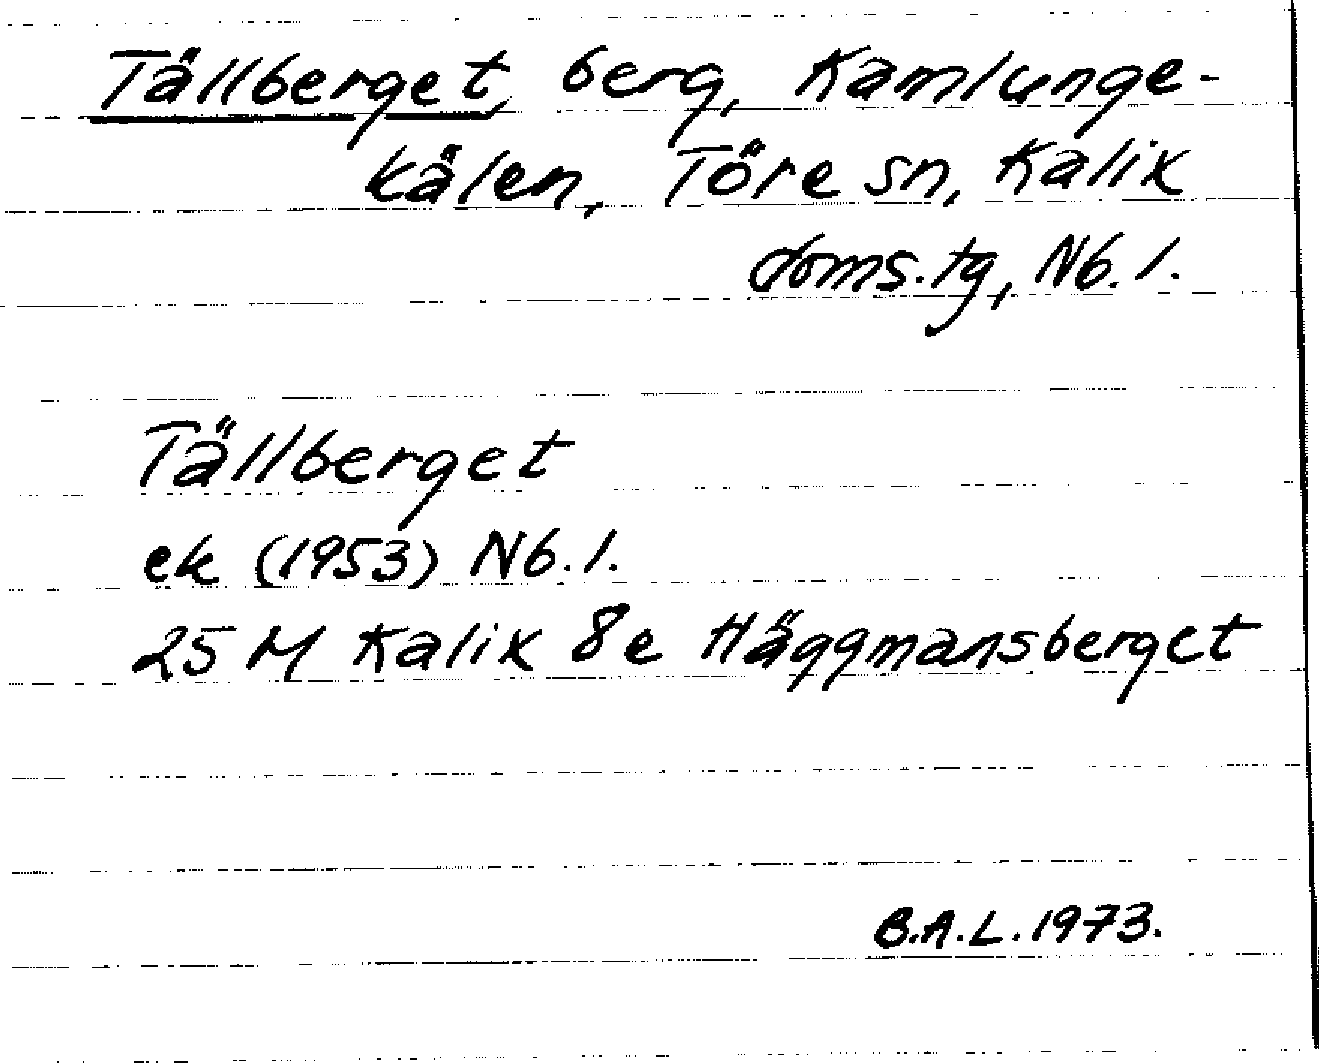 Tällberget, berg, Kamlunge-
kölen, Töre sn, Kalix
doms.tg, Nb. l.
Tällberget
ek (1953) Nb. l.
25 M Kalix 8e Häggmansberget
B.A.L. 1973.